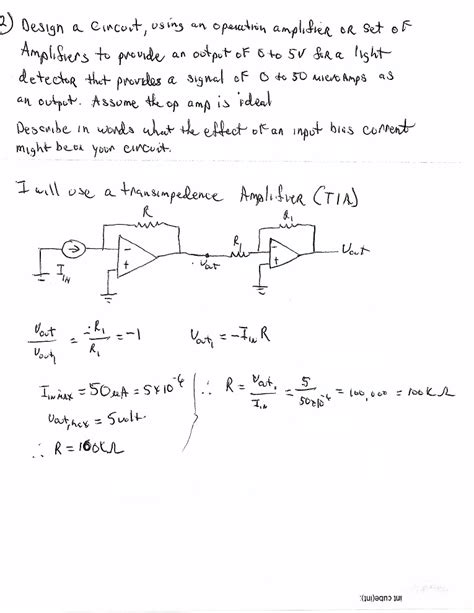 2) Design a Circuit, using an operation amplifier or set of
Amplifiers to provide an output of 0 to 5V for a light
detector that provides a signal of 0 to 50 microAmps as
an output. Assume the op amp is ideal
Describe in words what the effect of an input bias current
might be on your circuit.
I will use a transimpedence Amplifier (TIA)
R R1
R1 Vout
Vout
IIN
Vout/Vout1 = -R1/R1 = -1 Vout1 = -IIN R
IIN MAX = 50μA = 5×10^-6 ∴ R = Vout1/IIN = 5/50×10^-6 = 100,000 = 100KΩ
Vout,max = 5volt.
∴ R = 100KΩ
int cube(int);